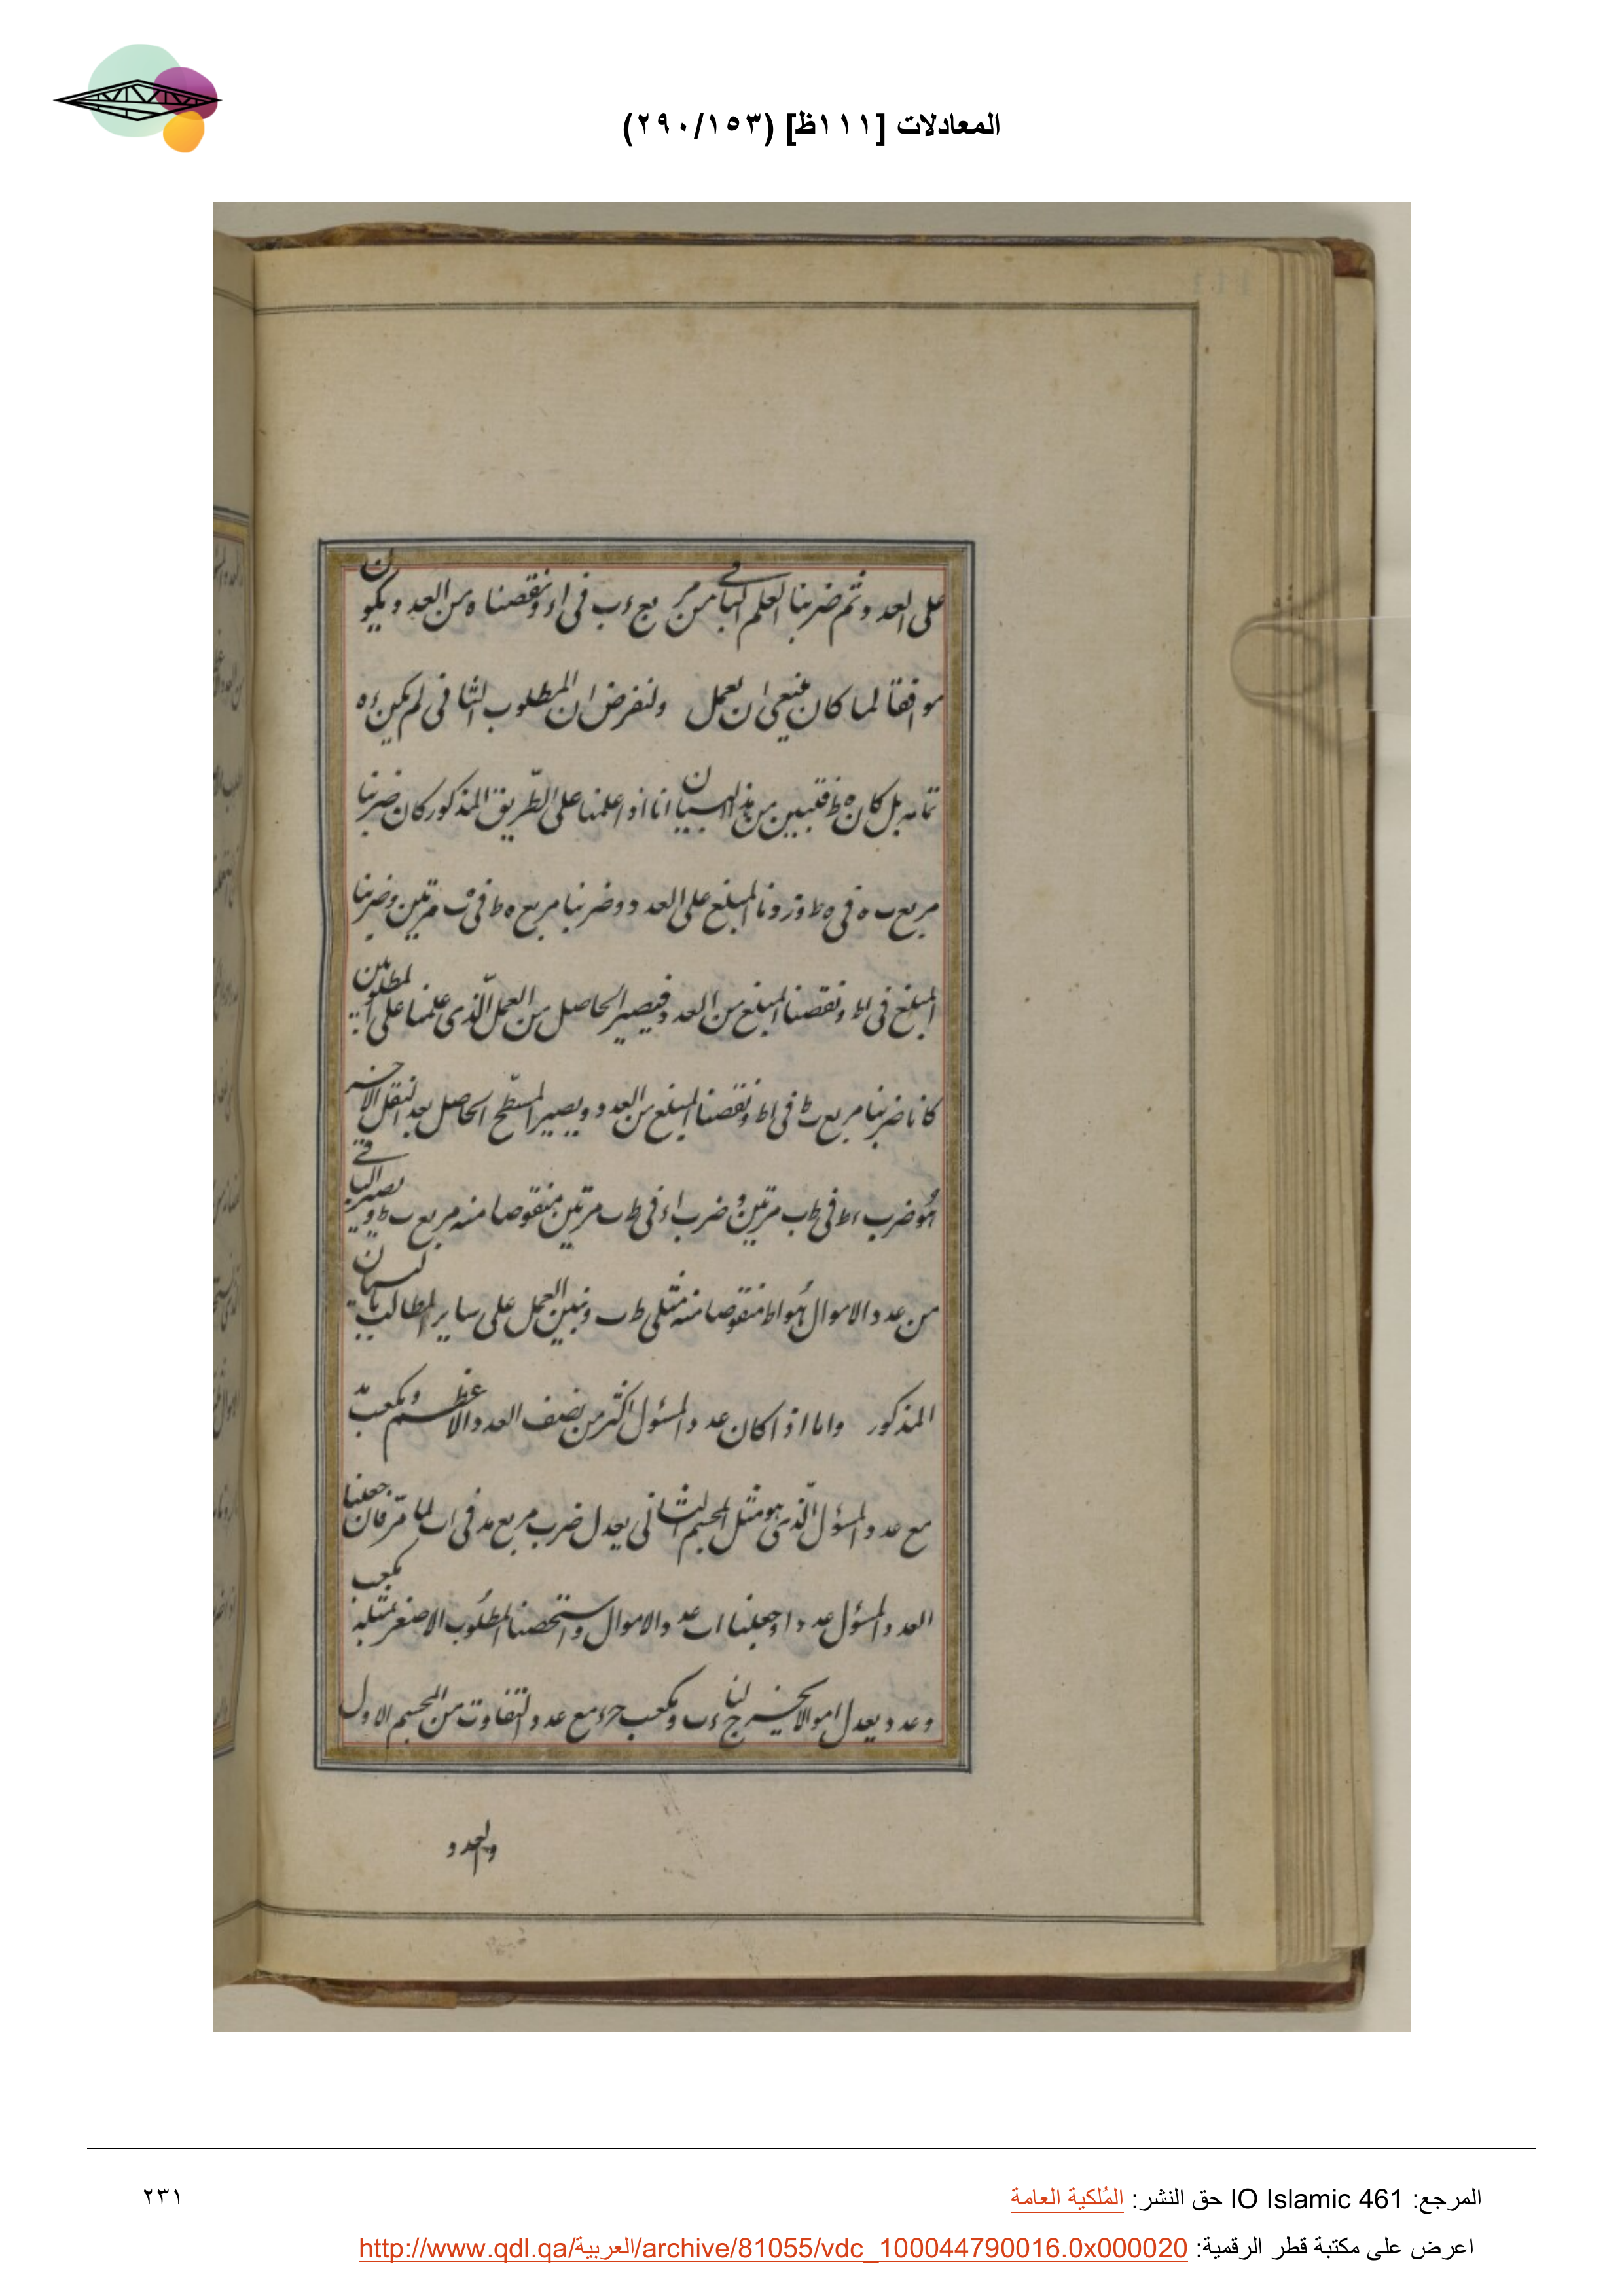 المعادلات [١١١ظ] (٢٩٠/١٥٣)
على العدد ثم ضربنا العلم الباقى من مربع ءب فى اء ونقصناه من العدد ويكون
موافقا لما كان ينبغى ان نعمل ولنفرض ان المطلوب الثانى لم يكن ءه
تمامه بل كان ه ط فتبين من هذا البيان انا اذا علمنا على الطريق المذكور كان ضربنا
مربع ب ه فى ه ط وزدنا المبلغ على العدد وضربنا مربع ه ط فى ه ب مرتين وضربنا
المبلغ فى اط ونقصنا المبلغ من العدد فيصير الحاصل من العمل الذى علمنا على المطلوبين
كانا ضربنا مربع ب ط فى اط ونقصنا المبلغ من العدد ويصير المسطح الحاصل بعد النقل الاخير
هو ضرب ءط فى ط ب مرتين وضرب اء فى ط ب مرتين منقوصا منه مربع ب ط ويصير الباقى
من عدد الاموال هو اط منقوصا منه مثلى ط ب ونبين العمل على ساير المطالب بالبيان
المذكور واما اذا كان عدد المسؤل اكثر من نصف العدد الاعظم ومكعب
مع عدد المسؤل الذى هو مثل المجسم الثانى يعدل ضرب مربع مد فى اب لما مر فان جعلنا
العدد المسؤل عددا وجعلنا اب عدد الاموال واستحصنا المطلوب الاصغر بمثله مكعب
وعدد يعدل اموالا يخرج لنا ءب ومكعب حرء مع عدد التفاوت من المجسم الاول
والعدد
المرجع: IO Islamic 461 حق النشر: المُلكية العامة
٢٣١
اعرض على مكتبة قطر الرقمية: http://www.qdl.qa/العربية/archive/81055/vdc_100044790016.0x000020